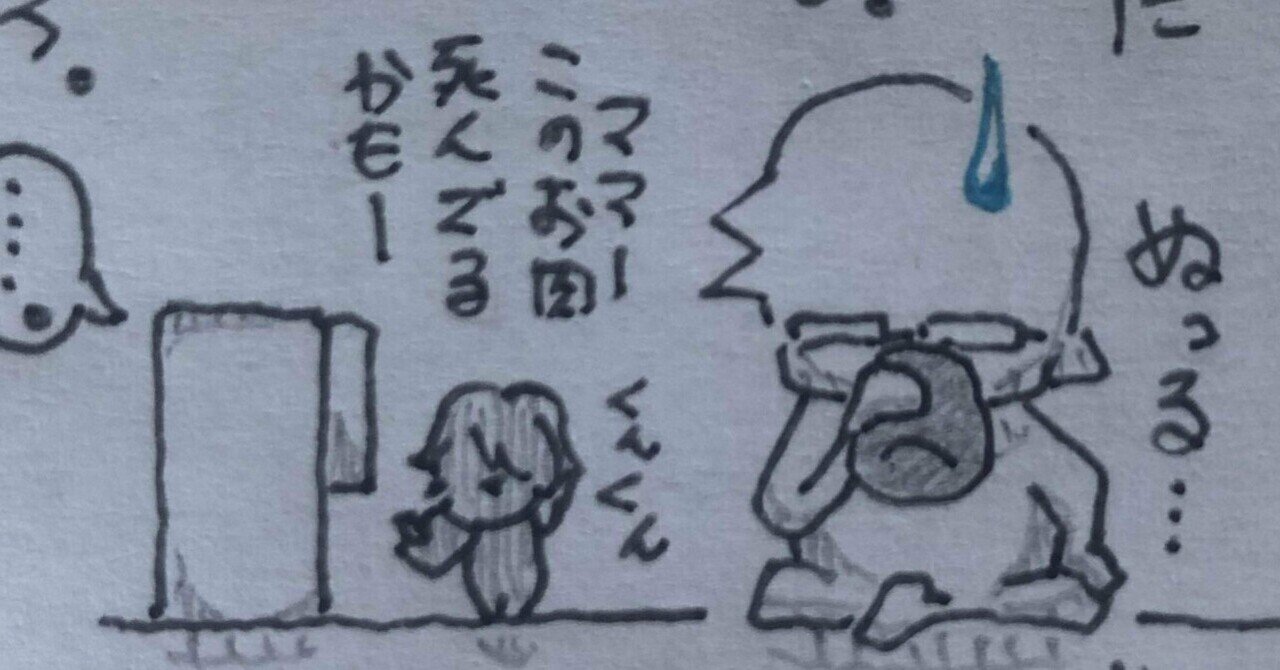 ぬっる…
ママー
このお肉
死んでる
かもー
くんくん